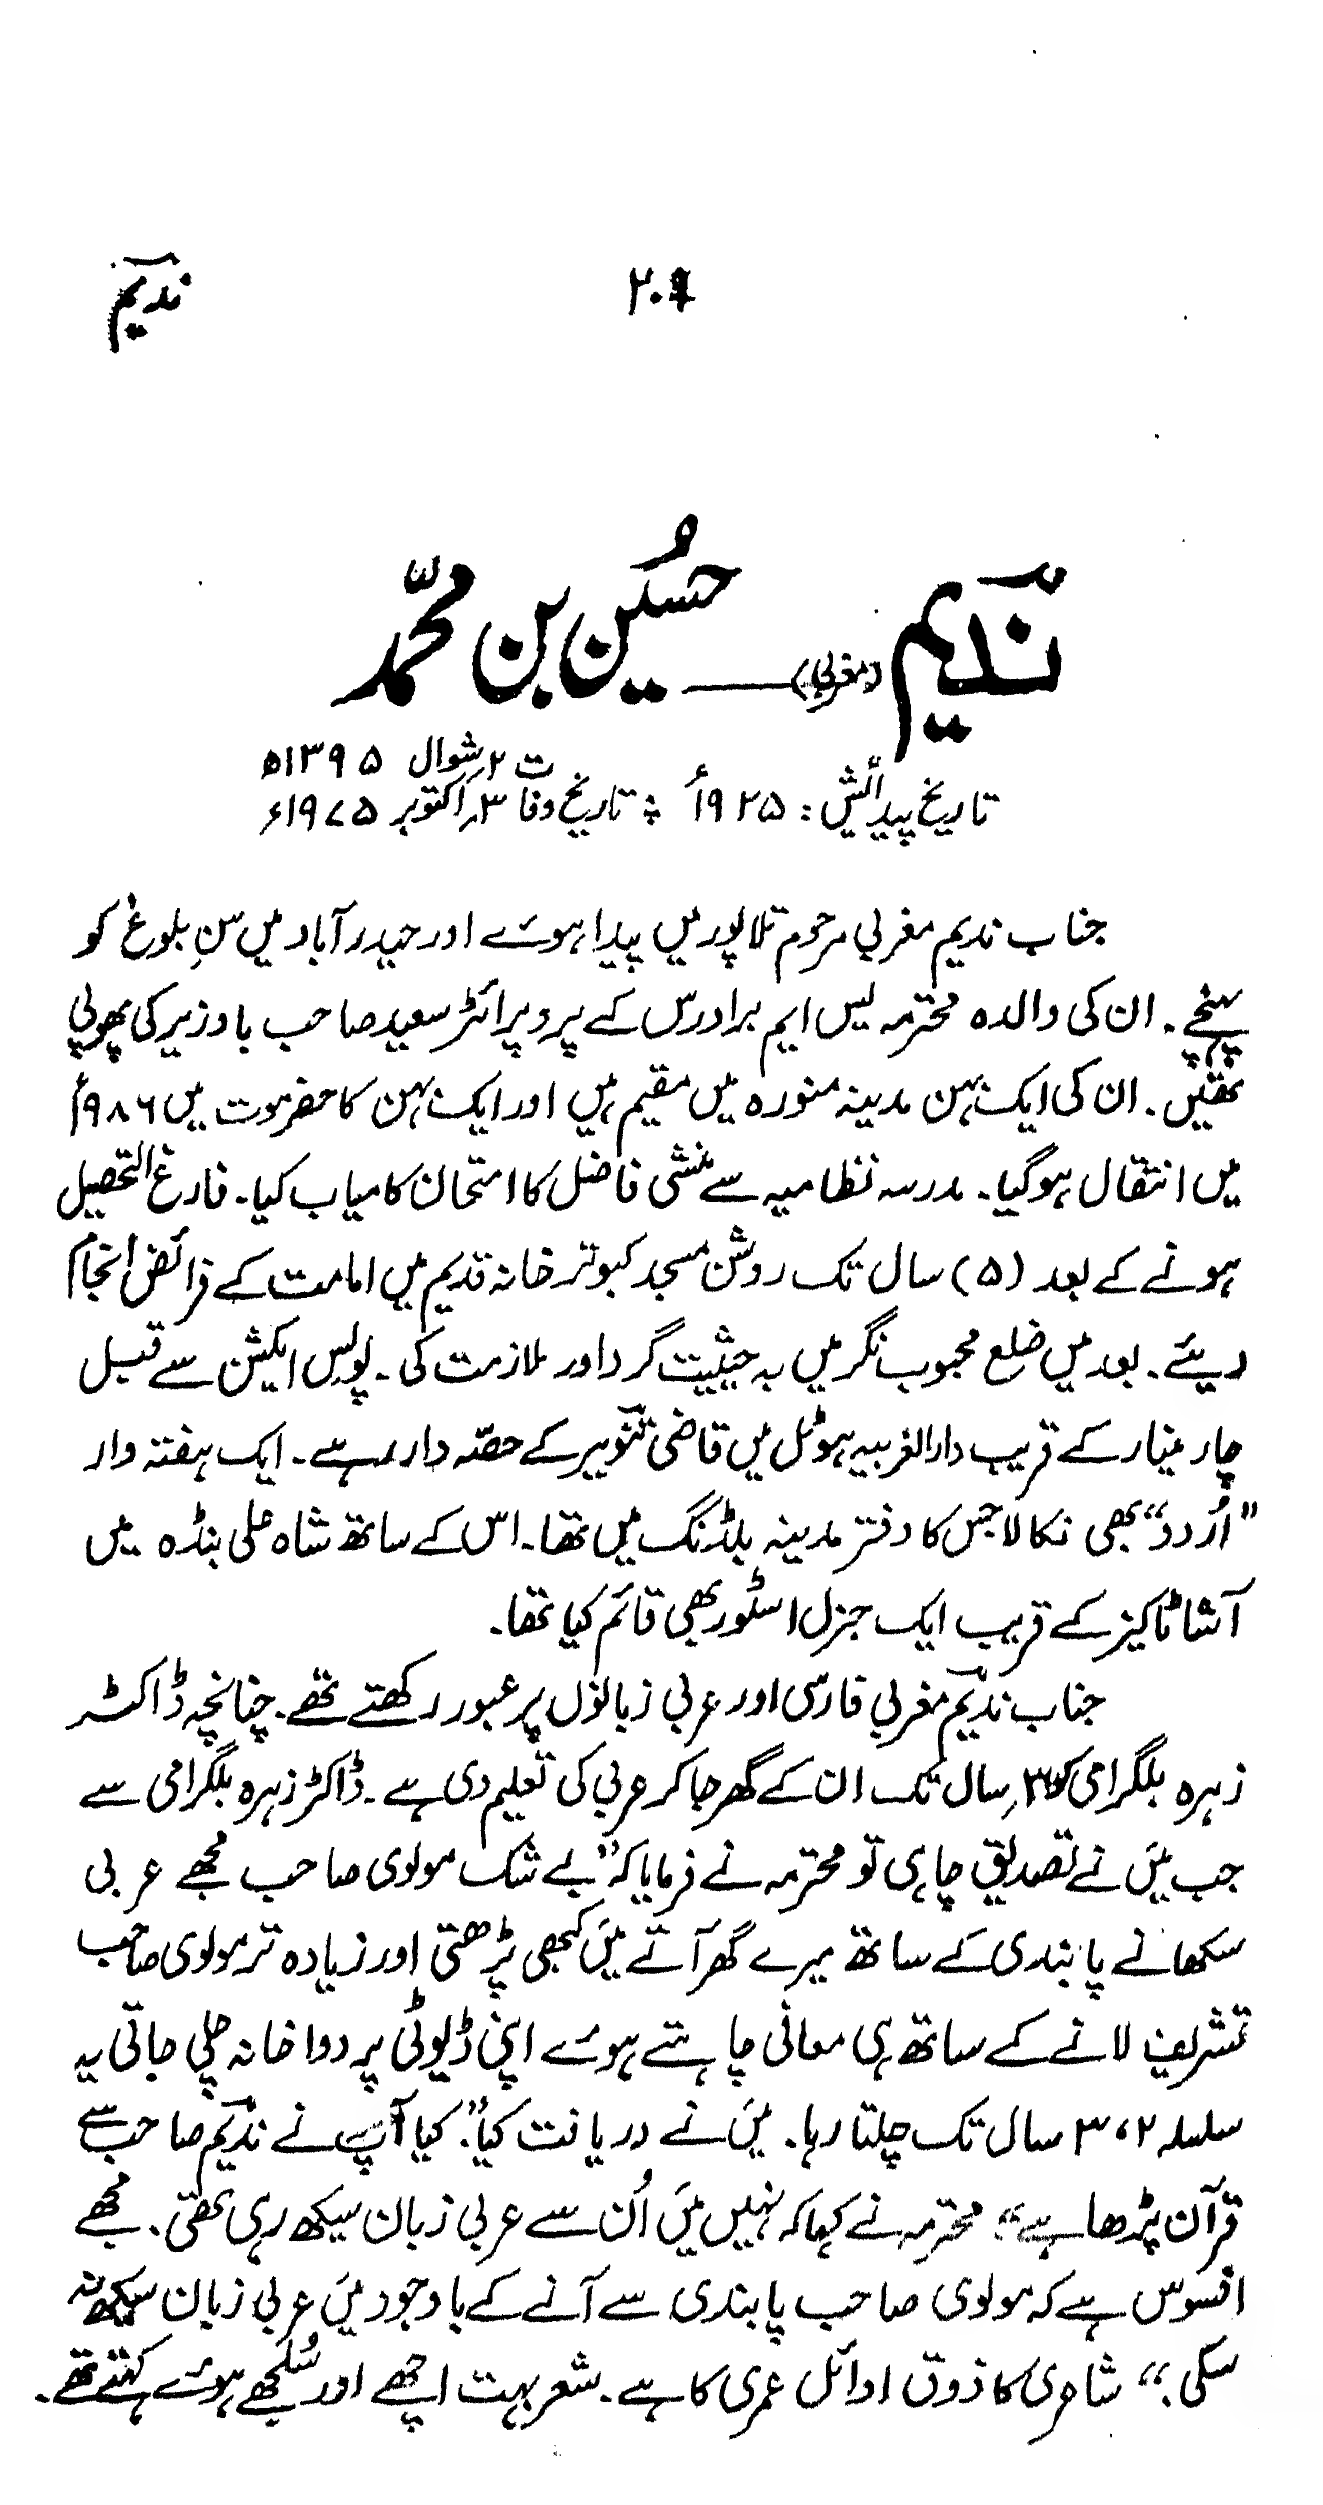 ندیمؔ
ندیمؔ (مغربی) حُسین بن محمّد
تاریخ پیدائش: ۱۹۲۵ء ؛ تاریخ وفات ۲؍شوال ۱۳۹۵ھ ۳؍اکتوبر ۱۹۷۵ء
جناب ندیم مغربی مرحوم تلاپور میں پیدا ہوئے اور حیدرآباد میں سنِ بلوغ کو
پہنچے۔ ان کی والدہ محترمہ یس ایم برادرس کے پروپرائٹر سعید صاحب باوزیر کی پھوپی
تھیں۔ ان کی ایک بہن مدینہ منورہ میں مقیم ہیں اور ایک بہن کا حضرموت میں ۱۹۸۶ء
میں انتقال ہوگیا۔ مدرسہ نظامیہ سے منشی فاضل کا امتحان کامیاب کیا۔ فارغ التحصیل
ہونے کے بعد (۵) سال تک روشن مسجد کبوتر خانہ قدیم میں امامت کے فرائض انجام
دیئے۔ بعد میں ضلع محبوب نگر میں بہ حیثیت گرداور ملازمت کی۔ پولیس ایکشن سے قبل
چار مینار کے قریب دارالغربیہ ہوٹل میں قاضی تنویر کے حصّہ دار رہے۔ ایک ہفتہ وار
”اُردو“ بھی نکالا جس کا دفتر مدینہ بلڈنگ میں تھا۔ اس کے ساتھ شاہ علی بنڈہ میں
آشا ٹاکیز کے قریب ایک جنرل اسٹور بھی قائم کیا تھا۔
جناب ندیمؔ مغربی فارسی اور عربی زبانوں پر عبور رکھتے تھے۔ چنانچہ ڈاکٹر
زہرہ بلگرامی کو سال تک ان کے گھر جاکر عربی کی تعلیم دی ہے۔ ڈاکٹر زہرہ بلگرامی سے
جب میں نے تصدیق چاہی تو محترمہ نے فرمایا کہ ”بے شک مولوی صاحب مجھے عربی
سکھانے پابندی کے ساتھ میرے گھر آتے میں کبھی پڑھتی اور زیادہ تر مولوی صاحب
تشریف لانے کے ساتھ ہی معافی چاہتے ہوئے اپنی ڈیوٹی پر دواخانہ چلی جاتی یہ
سلسلہ ۲، ۳ سال تک چلتا رہا۔ میں نے دریافت کیا ”کیا آپ نے ندیمؔ صاحب سے
قرآن پڑھا ہے“ محترمہ نے کہا کہ نہیں میں اُن سے عربی زبان سیکھ رہی تھی۔ مجھے
افسوس ہے کہ مولوی صاحب پابندی سے آنے کے باوجود میں عربی زبان سیکھ نہ
سکی۔“ شاعری کا ذوق اوائل عمری کا ہے۔ شعر بہت اچھے اور سُلجھے ہوئے کہتے تھے۔